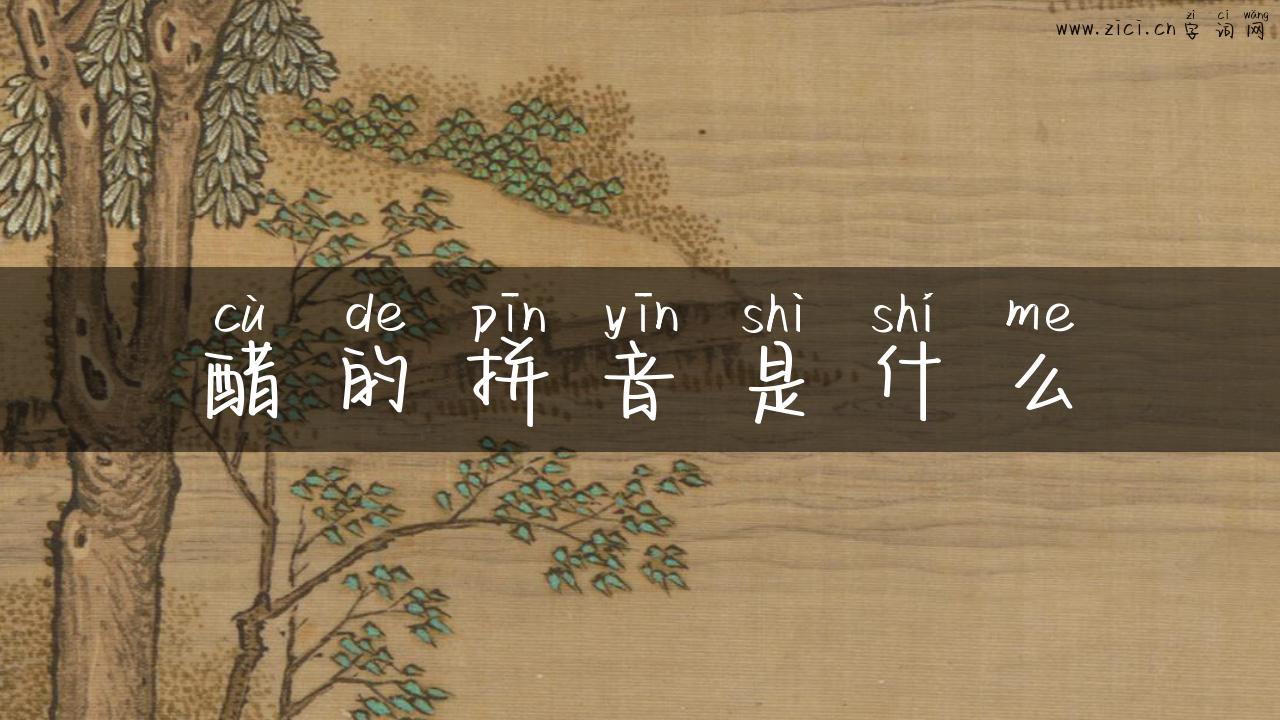 zì cí wǎng
www.zici.cn 字词网
cù de pīn yīn shì shí me
醋的拼音是什么